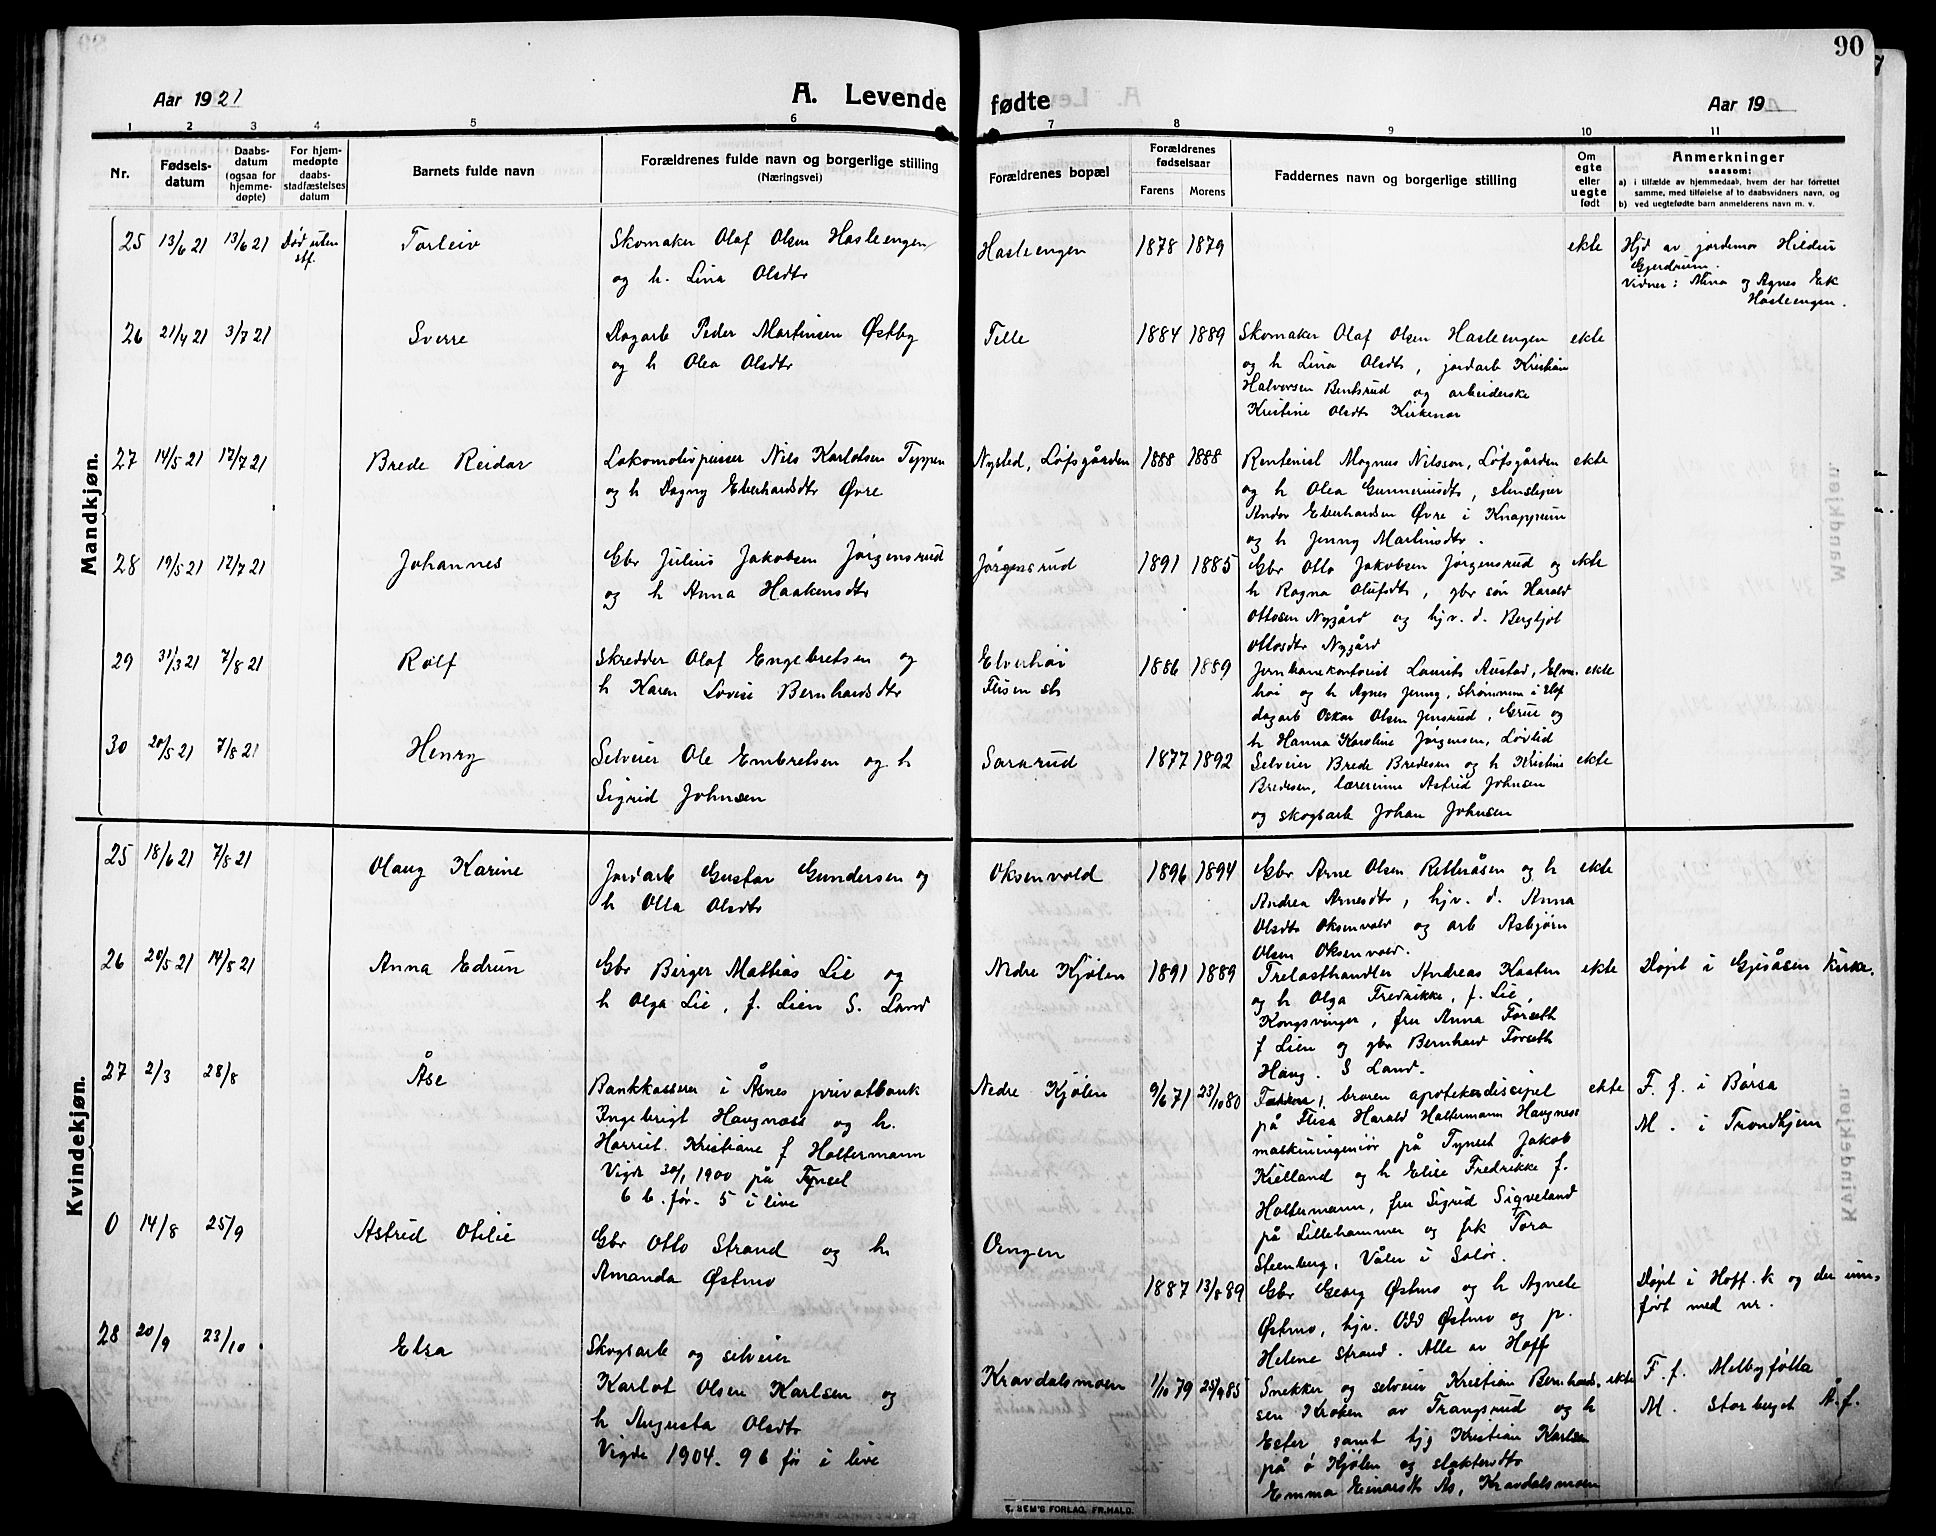 90
Aar 1921
A. Levende fødte
Aar 19
1 2 3 4 5 6 7 8 9 10 11
Nr.
Fødsels-
datum
Daabs-
datum
(ogsaa for
hjemme-
døpte)
For hjem-
medøpte
daabs-
stadfæstelses
datum
Barnets fulde navn
Forældrenes fulde navn og borgerlige stilling
(Næringsvei)
Forældrenes bopæl
Forældrenes
fødselsaar
Farens Morens
Faddernes navn og borgerlige stilling
Om
egte
eller
uegte
født
Anmerkninger
saasom:
a) i tilfælde av hjemmedaab, hvem der har forrettet
samme, med tilføielse af to daabsvidners navn, og
b) ved uegtefødte barn anmelderens navn m. v.
Mandkjøn.
25 13/6 21 13/6 21 Død uten
stf.
Torleiv
Skomaker Olaf Olsen Hasleengen
og h. Lina Olsdtr
Hasleengen
1878 1879
ekte
Hjd av jordemor Hildur
Gjerdrum.
Vidner: Alma og Agnes Ek
Hasleengen.
26 21/4 21 3/7 21
Sverre
Dagarb Peder Martinsen Østby
og h Olea Olsdtr
Telle
1884 1889
Skomaker Olaf Olsen Hasleengen
og h Lina Olsdtr, jordarb Kristian
Halvorsen Berntsrud og arbeiderske
Kristine Olsdtr Kirkenær
ekte
27 14/5 21 17/7 21
Brede Reidar
Lokomotivpusser Nils Karlotsen Teppen
og h Dagny Eberhardsdtr Øvre
Nysted, Løfsgården
1888 1888
Rentenist Magnus Nilsson, Løfsgården
og h Olea Gunneriusdtr, stensliper
Andor Eberhardsen Øvre i Knapperum
og h Jenny Martinsdtr.
ekte
28 19/5 21 17/7 21
Johannes
Gbr Julius Jakobsen Jørgensrud
og h Anna Haakensdtr
Jørgensrud
1891 1885
Gbr Otto Jakobsen Jørgensrud og
h Ragna Olufsdtr, gbr søn Harald
Ottosen Nygård og hjv. d. Bergljot
Ottosdtr Nygård
ekte
29 31/3 21 7/8 21
Rolf
Skredder Olaf Engebretsen og
h Karen Lovise Bernhardsdtr
Elverhøi
Flisen st
1886 1889
Jernbanekontorist Laurits Austad, Elver-
høi og h Agnes Jenny, Strømmen i Elf
dagarb Oskar Olsen Jensrud, Grue og
h Hanna Karoline Jørgensen, Løvlid
ekte
30 20/5 21 7/8 21
Henry
Selveier Ole Embretsen og h
Sigrid Johnsen
Sararud
1877 1892
Selveier Brede Bredesen og h Kristine
Bredesen, lærerinne Astrid Johnsen
og skogsarb Johan Johnsen
ekte
Kvindekjøn.
25 18/6 21 7/8 21
Olaug Karine
Jordarb Gustav Gundersen og
h Olla Olsdtr
Oksenvold
1896 1894
Gbr Arne Olsen Ritteråsen og h
Andrea Arnesdtr, hjv. d. Anna
Olsdtr Oksenvold og arb Asbjørn
Olsen Oksenvold.
ekte
26 20/5 21 14/8 21
Anna Edrun
Gbr Birger Mathias Lie og
h Olga Lie, f. Lien S. Land
Nedre Kjølen
1891 1889
Trelasthandler Andreas Kasten
og h Olga Fredrikke, f. Lie,
Kongsvinger, fru Anna Forseth
f Lien og gbr Bernhard Forseth
Haug. S Land.
ekte
Døpt i Gjesåsen kirke.
27 2/3 28/8
Åse
Bankkasserer i Åsnes privatbank
Ingebrigt Haugnæss og h.
Harriet Kristiane f Holtermann
Vigde 30/1 1900 på Tynset
6 b. før. 5 i live
Nedre Kjølen
9/6 71 23/10 80
Faren, broren apotekerdiscipel
på Flisa Harald Holtermann Haugness
maskiningeniør på Tynset Jakob
Kielland og h Elise Fredrikke f.
Holtermann, fru Sigrid Sigveland
på Lillehammer og frk Tora
Steenberg, Våler i Solør.
ekte
F. f. i Børsa
M. . i Trondhjem
0 14/8 25/9
Astrid Otilie
Gbr Otto Strand og h
Amanda Østmo
Oengen
1887 13/8 89
Gbr Georg Østmo og h Agnete
Østmo, hjv. Odd Østmo og p.
Helene Strand. Alle av Hoff
Døpt i Hoff. k og der inn-
ført med nr.
28 20/9 23/10
Elsa
Skogsarb og selveier
Karlot Olsen Karlsen og
h Augusta Olsdtr
Vigde 1904. 9 6 før i live
Kravdalsmoen
1/10 79 25/9 85
Snekker og selveier Kristian Bernhard-
sen Kroken av Trangsrud og h
Ester samt hjg Kristian Karlsen
på ø Kjølen og slakterdtr
Emma Einarsdtr Ås, Kravdalsmoen
ekte
F. f. Melbyfølla
M. Storberget Å.f.
E. SEM'S FORLAG, FR.HALD.